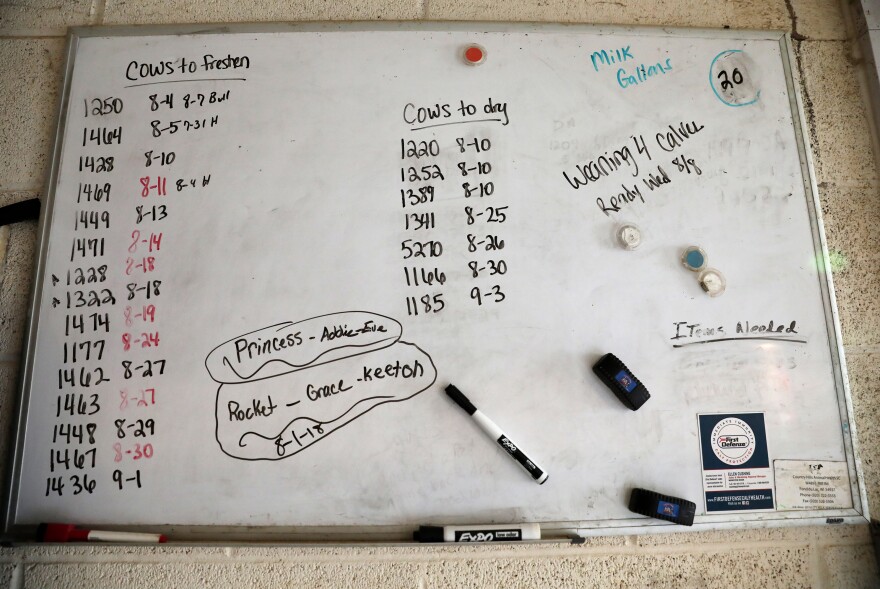 Cows to freshen
1250 8-4 8-7 Bull
1464 8-5 7-31 H
1428 8-10
1469 8-11 8-4 H
1449 8-13
1471 8-14
1228 8-18
1322 8-18
1474 8-19
1177 8-24
1462 8-27
1463 8-27
1448 8-29
1467 8-30
1436 9-1
Cows to dry
1220 8-10
1252 8-10
1389 8-10
1341 8-25
5270 8-26
1166 8-30
1185 9-3
Princess - Addie-Eve
Rocket - Grace - Keeton
8-1-18
Milk
Gallons
20
Weaning 4 calves
Ready Wed 8/8
Items Needed
First
Defense
WWW.FIRSTDEFENSECALFHEALTH.COM
EXPO
EXPO